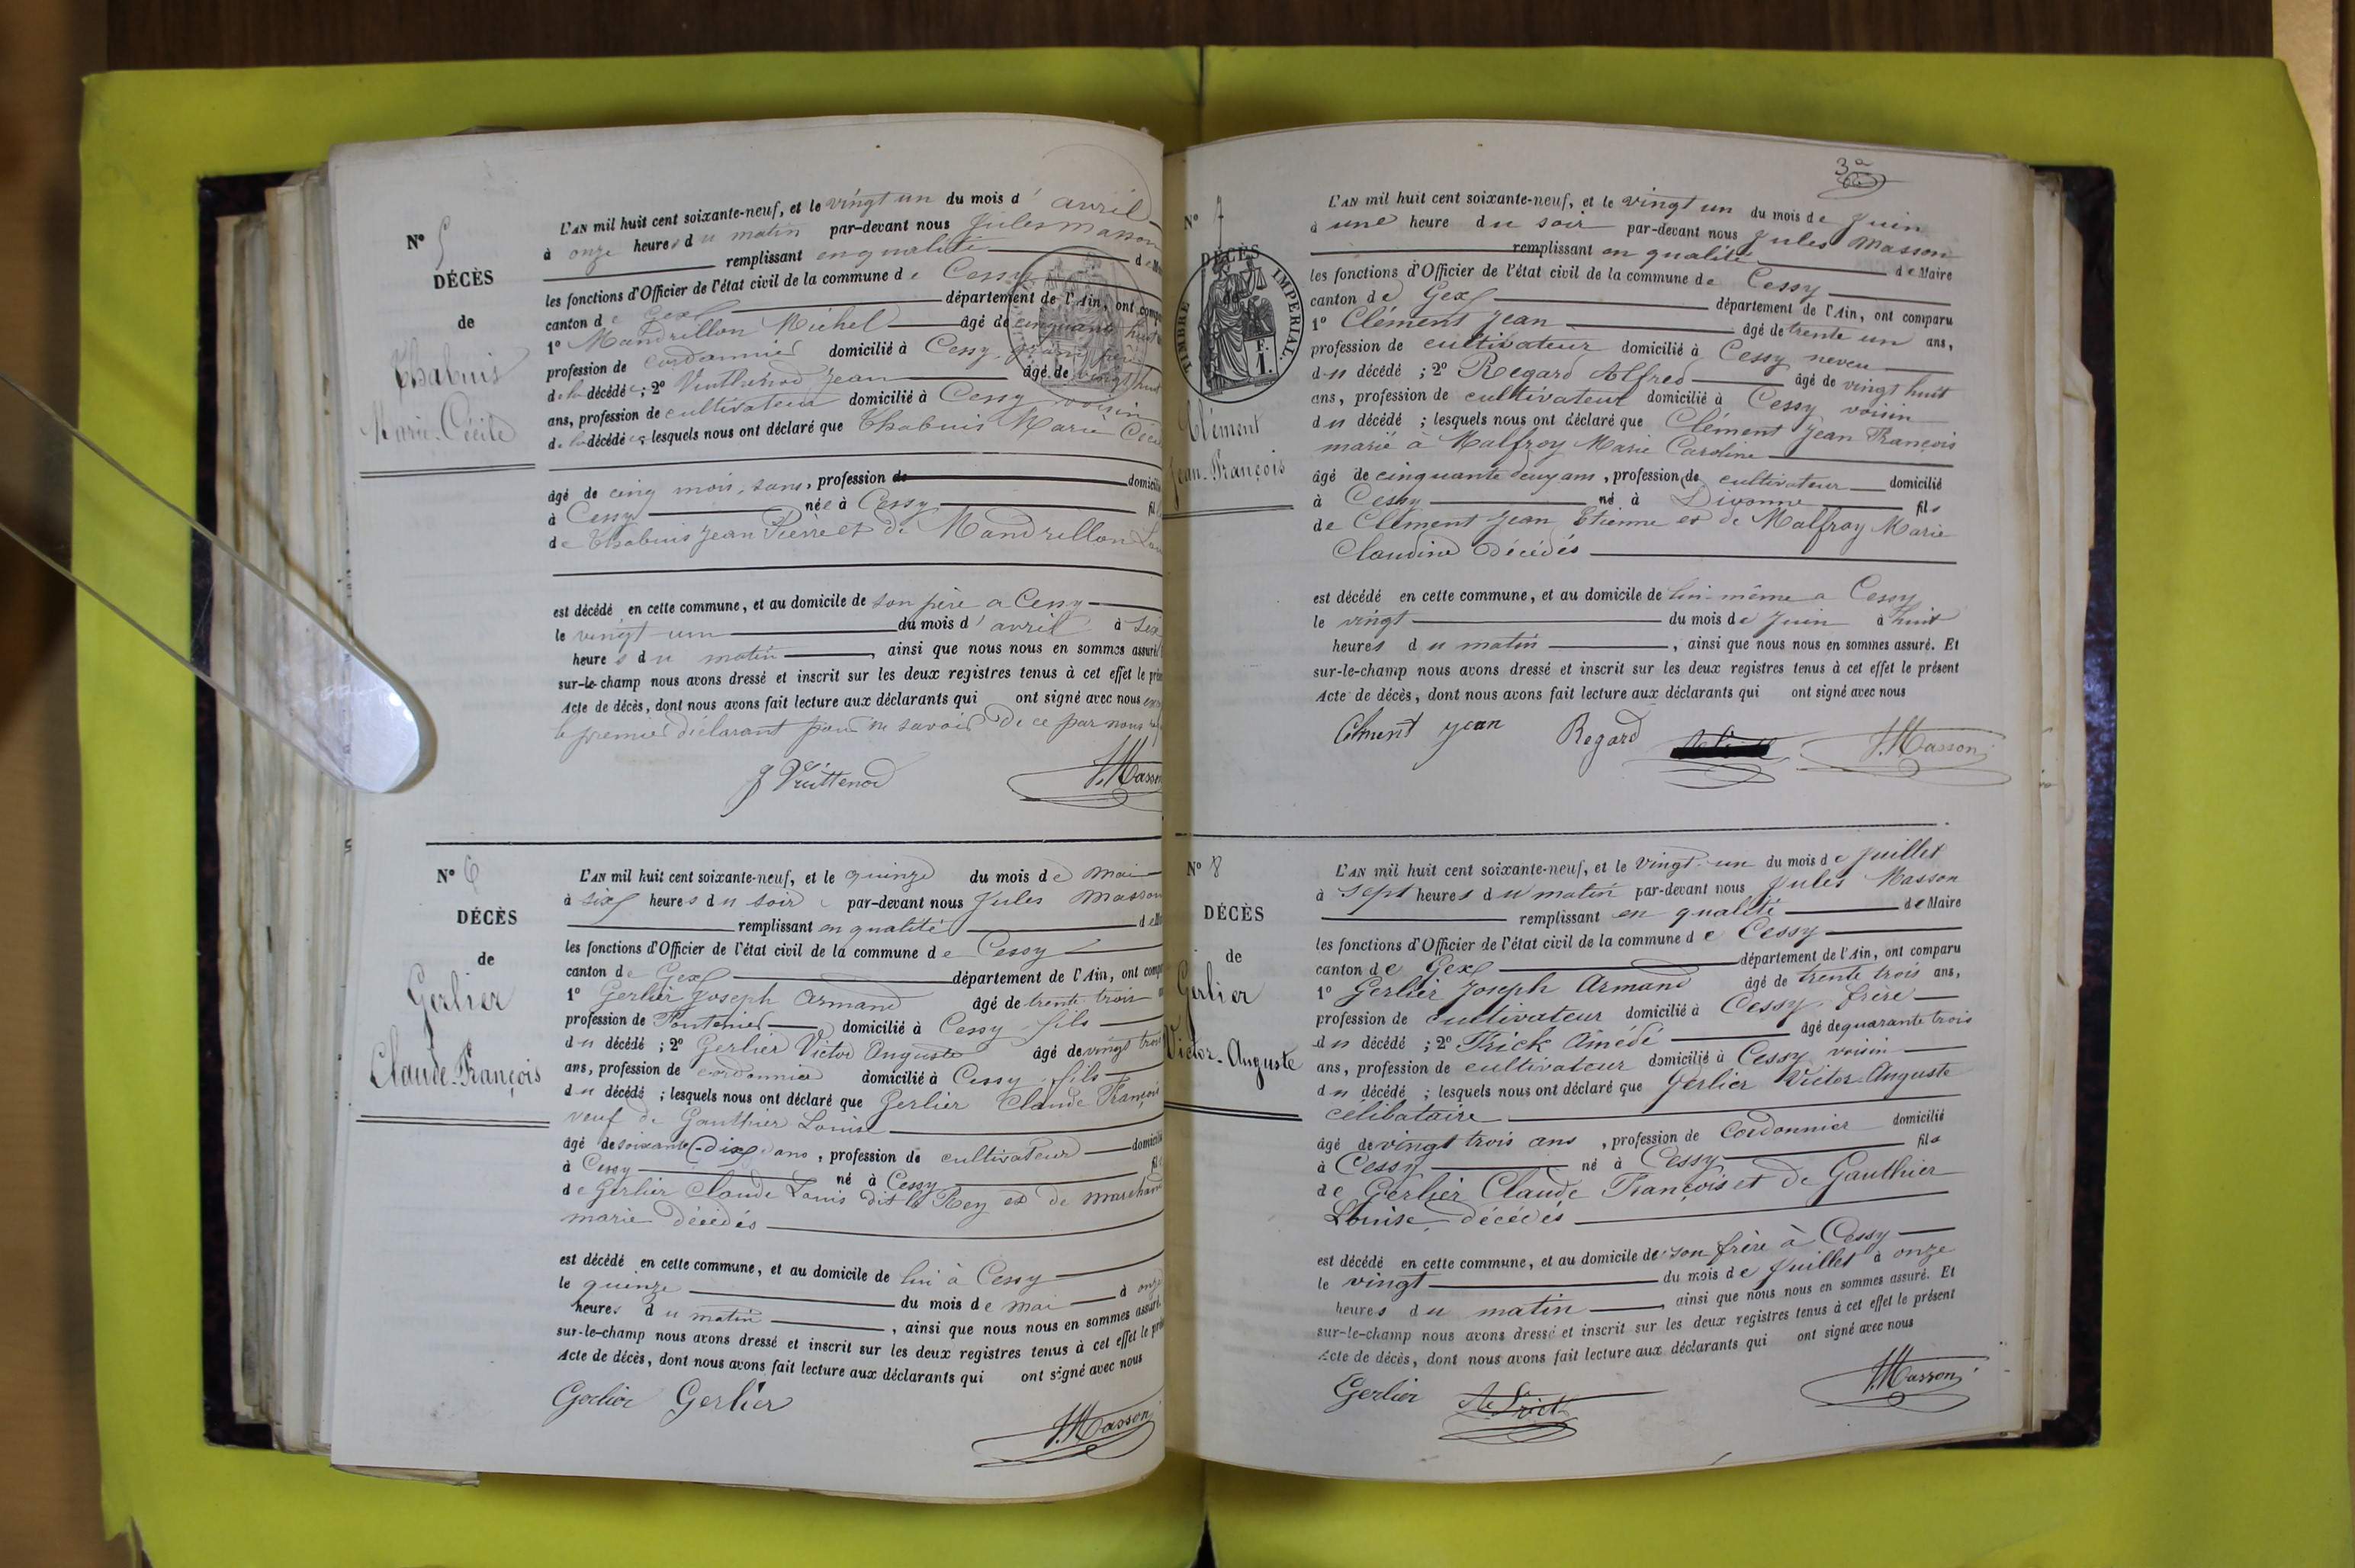 N° 5
DÉCÈS
de
Chabuis
Marie-Cécile
L'AN mil huit cent soixante-neuf, et le vingt un du mois d' avril
à onze heures du matin par-devant nous Jules Masson
remplissant en qualité de
les fonctions d'Officier de l'état civil de la commune de Cessy
canton de Gex département de l'Ain, ont
1° Mandrillon Michel âgé de cinquante huit
profession de cordonnier domicilié à Cessy, grand père
de la décédée ; 2° Jean âgé de vingt huit
ans, profession de cultivateur domicilié à Cessy voisin
de la décédée lesquels nous ont déclaré que Chabuis Marie
âgé de cinq mois, sans, profession de
à Cessy née à Cessy
de Chabuis Jean Pierre et de Mandrillon
est décédé en cette commune, et au domicile de son père a Cessy
le vingt-un du mois d' avril à six
heures du matin , ainsi que nous nous en sommes assuré
sur-le-champ nous avons dressé et inscrit sur les deux registres tenus à cet effet le
Acte de décès, dont nous avons fait lecture aux déclarants qui ont signé avec nous
le premier déclarant pour ne savoir de ce par nous
J Masson
N° 6
DÉCÈS
de
Gerlier
Claude-François
L'AN mil huit cent soixante-neuf, et le quinze du mois de mai
à six heures du soir par-devant nous Jules Masson
remplissant en qualité
les fonctions d'Officier de l'état civil de la commune de Cessy
canton de Gex département de l'Ain, ont
1° Gerlier Joseph Armand âgé de trente trois
profession de domicilié à Cessy fils
du décédé ; 2° Gerlier Victor Auguste âgé de vingt trois
ans, profession de cordonnier domicilié à Cessy fils
du décédé ; lesquels nous ont déclaré que Gerlier Claude François
veuf de Gauthier Louise
âgé de soixante-dix ans, profession de cultivateur
à Cessy né à Cessy
de Gerlier Claude Louis dit le Rey et de marchand
marie décédés
est décédé en cette commune, et au domicile de lui à Cessy
le quinze du mois de mai à onze
heures du matin , ainsi que nous nous en sommes assuré.
sur-le-champ nous avons dressé et inscrit sur les deux registres tenus à cet effet le
Acte de décès, dont nous avons fait lecture aux déclarants qui ont signé avec nous
Gerlier Gerlier
J Masson
3
N° 7
DÉCÈS
de
TIMBRE IMPÉRIAL.
F.
1.
Clément
Jean-François
L'AN mil huit cent soixante-neuf, et le vingt un du mois de Juin
à une heure du soir par-devant nous Jules Masson
remplissant en qualité de Maire
les fonctions d'Officier de l'état civil de la commune de Cessy
canton de Gex département de l'Ain, ont comparu
1° Clément Jean âgé de trente un ans,
profession de cultivateur domicilié à Cessy neveu
du décédé ; 2° Regard Alfred âgé de vingt huit
ans, profession de cultivateur domicilié à Cessy voisin
du décédé ; lesquels nous ont déclaré que Clément Jean François
marié à Malfroy Marie Caroline
âgé de cinquante deux ans, profession de cultivateur domicilié
à Cessy né à Divonne fils
de Clément Jean Etienne et de Malfroy Marie
Claudine décédés
est décédé en cette commune, et au domicile de lui-même a Cessy
le vingt du mois de Juin à huit
heures du matin , ainsi que nous nous en sommes assuré. Et
sur-le-champ nous avons dressé et inscrit sur les deux registres tenus à cet effet le présent
Acte de décès, dont nous avons fait lecture aux déclarants qui ont signé avec nous
Clment jean Regard J Masson
N° 8
DÉCÈS
de
Gerlier
Victor-Auguste
L'AN mil huit cent soixante-neuf, et le vingt-un du mois de Juillet
à sept heures du matin par-devant nous Jules Masson
remplissant en qualité de Maire
les fonctions d'Officier de l'état civil de la commune de Cessy
canton de Gex département de l'Ain, ont comparu
1° Gerlier Joseph Armand âgé de trente trois ans,
profession de cultivateur domicilié à Cessy frère
du décédé ; 2° Frick Amédé âgé de quarante trois
ans, profession de cultivateur domicilié à Cessy voisin
du décédé ; lesquels nous ont déclaré que Gerlier Victor-Auguste
célibataire
âgé de vingt trois ans , profession de Cordonnier domicilié
à Cessy né à Cessy fils
de Gerlier Claude François et de Gauthier
Louise décédés
est décédé en cette commune, et au domicile de son frère à Cessy
le vingt du mois de Juillet à onze
heures du matin , ainsi que nous nous en sommes assuré. Et
sur-le-champ nous avons dressé et inscrit sur les deux registres tenus à cet effet le présent
Acte de décès, dont nous avons fait lecture aux déclarants qui ont signé avec nous
Gerlier J Masson